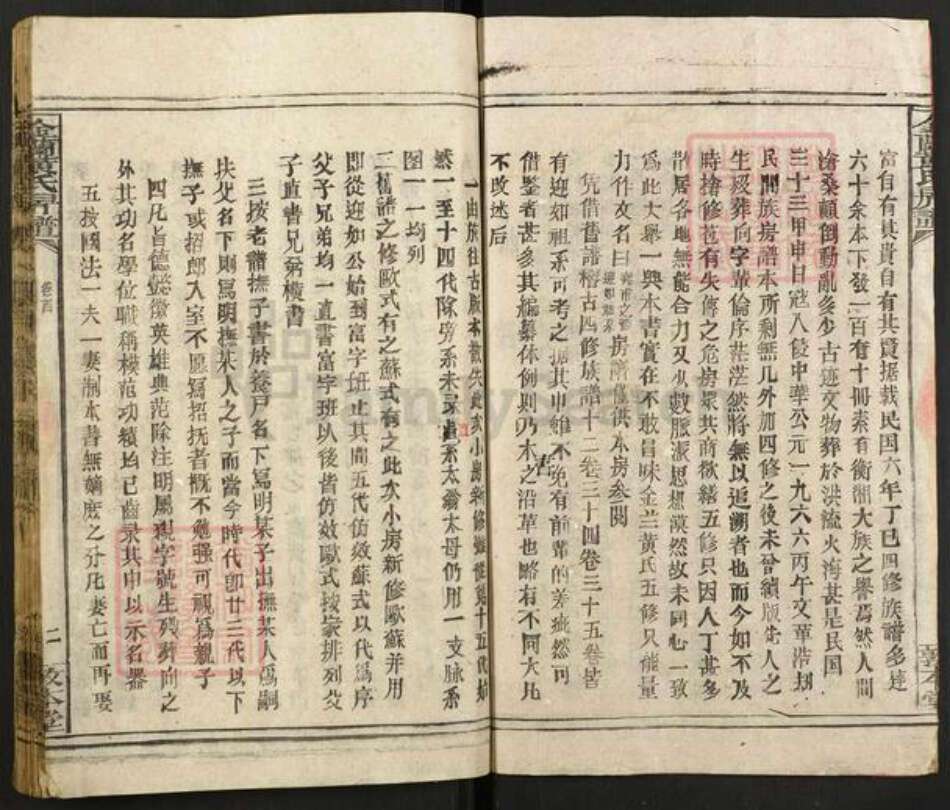 富自有其貴自有其貴据載民国六年丁巳四修族譜多達
六十余本下發一百有十冊素有衡湘大族之譽焉然人間
滄桑顛倒動亂多少古迹文物葬於洪流火海甚是民国
三十三甲申日寇入侵中華公元一九六六丙午文革浩刼
民間族房譜本所剩無几外加四修之後未曾續版先人之
生殁葬向字輩倫序茫茫然將無以追溯者也而今如不及
時搶修苞有失傳之危房眾共商欲續五修只因人丁甚多
散居各地無能合力又少數脈派思想漠然故未同心一致
為此大舉一興木書實在不敢冒昧金兰黃氏五修只能量
力作支名曰 房譜僅供本房参閱
凭借舊譜稽古四修族譜十二卷三十四卷三十五卷皆
有迎如祖系可考之據其中雖不免有前輩的差疵然可
借鑒者甚多其編纂体例則乃木之沿革也略有不同大凡
不改述后
一由族往古版本散失此次小房新修 十五代始
然一至十四代除旁系未录直系太翁太母仍用一支脉系
图一一均列
二舊譜之修歐式有之蘇式有之此次小房新修歐蘇并用
即從迎如公始到富字班止其間五代仿效蘇式以代為序
父子兄弟均一直書富字班以後皆仿效歐式按家排列父
子直書兄弟橫書
三按老譜撫子書於養戶名下寫明某子出撫某人為嗣
扶父名下則寫明撫某人之子而當今時代卽廿三代以下
撫子或招郎入室不愿寫招抚者概不勉强可視為親子
四凡旨德懿徽英雄典范除注明屬規字號生殁葬向之
外其功名學位職稱模范功績均已齒录其中以示名器
五按國法一夫一妻制本書無嫡庶之分凡妻亡而再娶
金蘭黃氏房譜
卷首
二
敦本堂